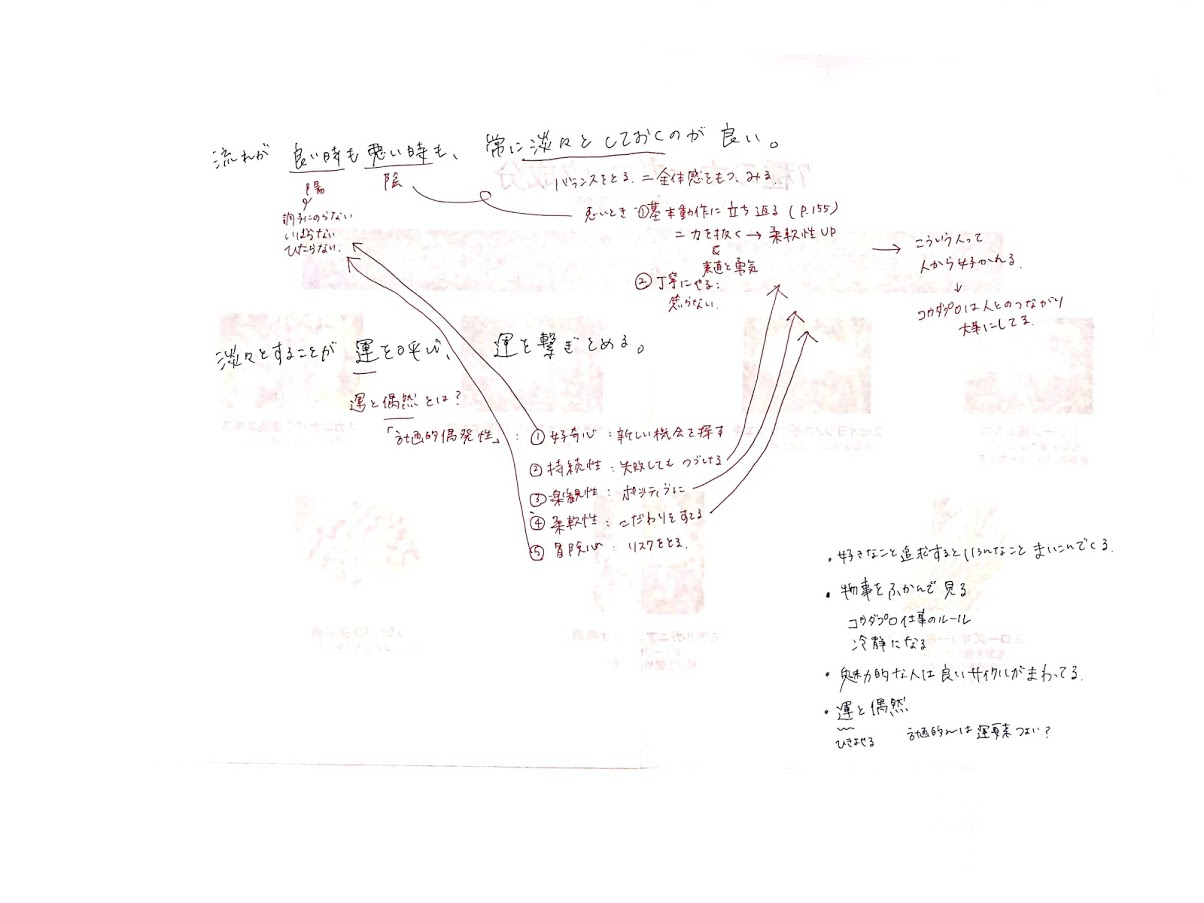 流れが 良い時も 悪い時も、 常に淡々と しておくのが 良い。
陽
陰
バランスをとる. = 全体感をもつ、みる.
調子にのらない
いばらない
ひたらない.
悪いとき ①基本動作に立ち返る (P.155)
= 力を抜く → 柔軟性UP
&
素直と勇気
②丁寧にやる:
焦らない.
→ こういう人って
人から好かれる.
↓
コウダプロは人とのつながり
大事にしてる.
淡々とすることが 運を呼び、 運を繋ぎとめる。
運と偶然とは?
「計画的偶発性」: ①好奇心:新しい機会を探す
②持続性:失敗しても つづける
③楽観性: ポジティブに
④柔軟性: こだわりをすてる
⑤冒険心: リスクをとる.
・好きなこと追求するといろんなこと まいこんでくる.
・物事をふかんで見る
コウダプロ仕事のルール
冷静になる
・魅力的な人は良いサイクルがまわってる.
・運と偶然
ひきよせる
計画的 は 運要素つよい?
7種 成分